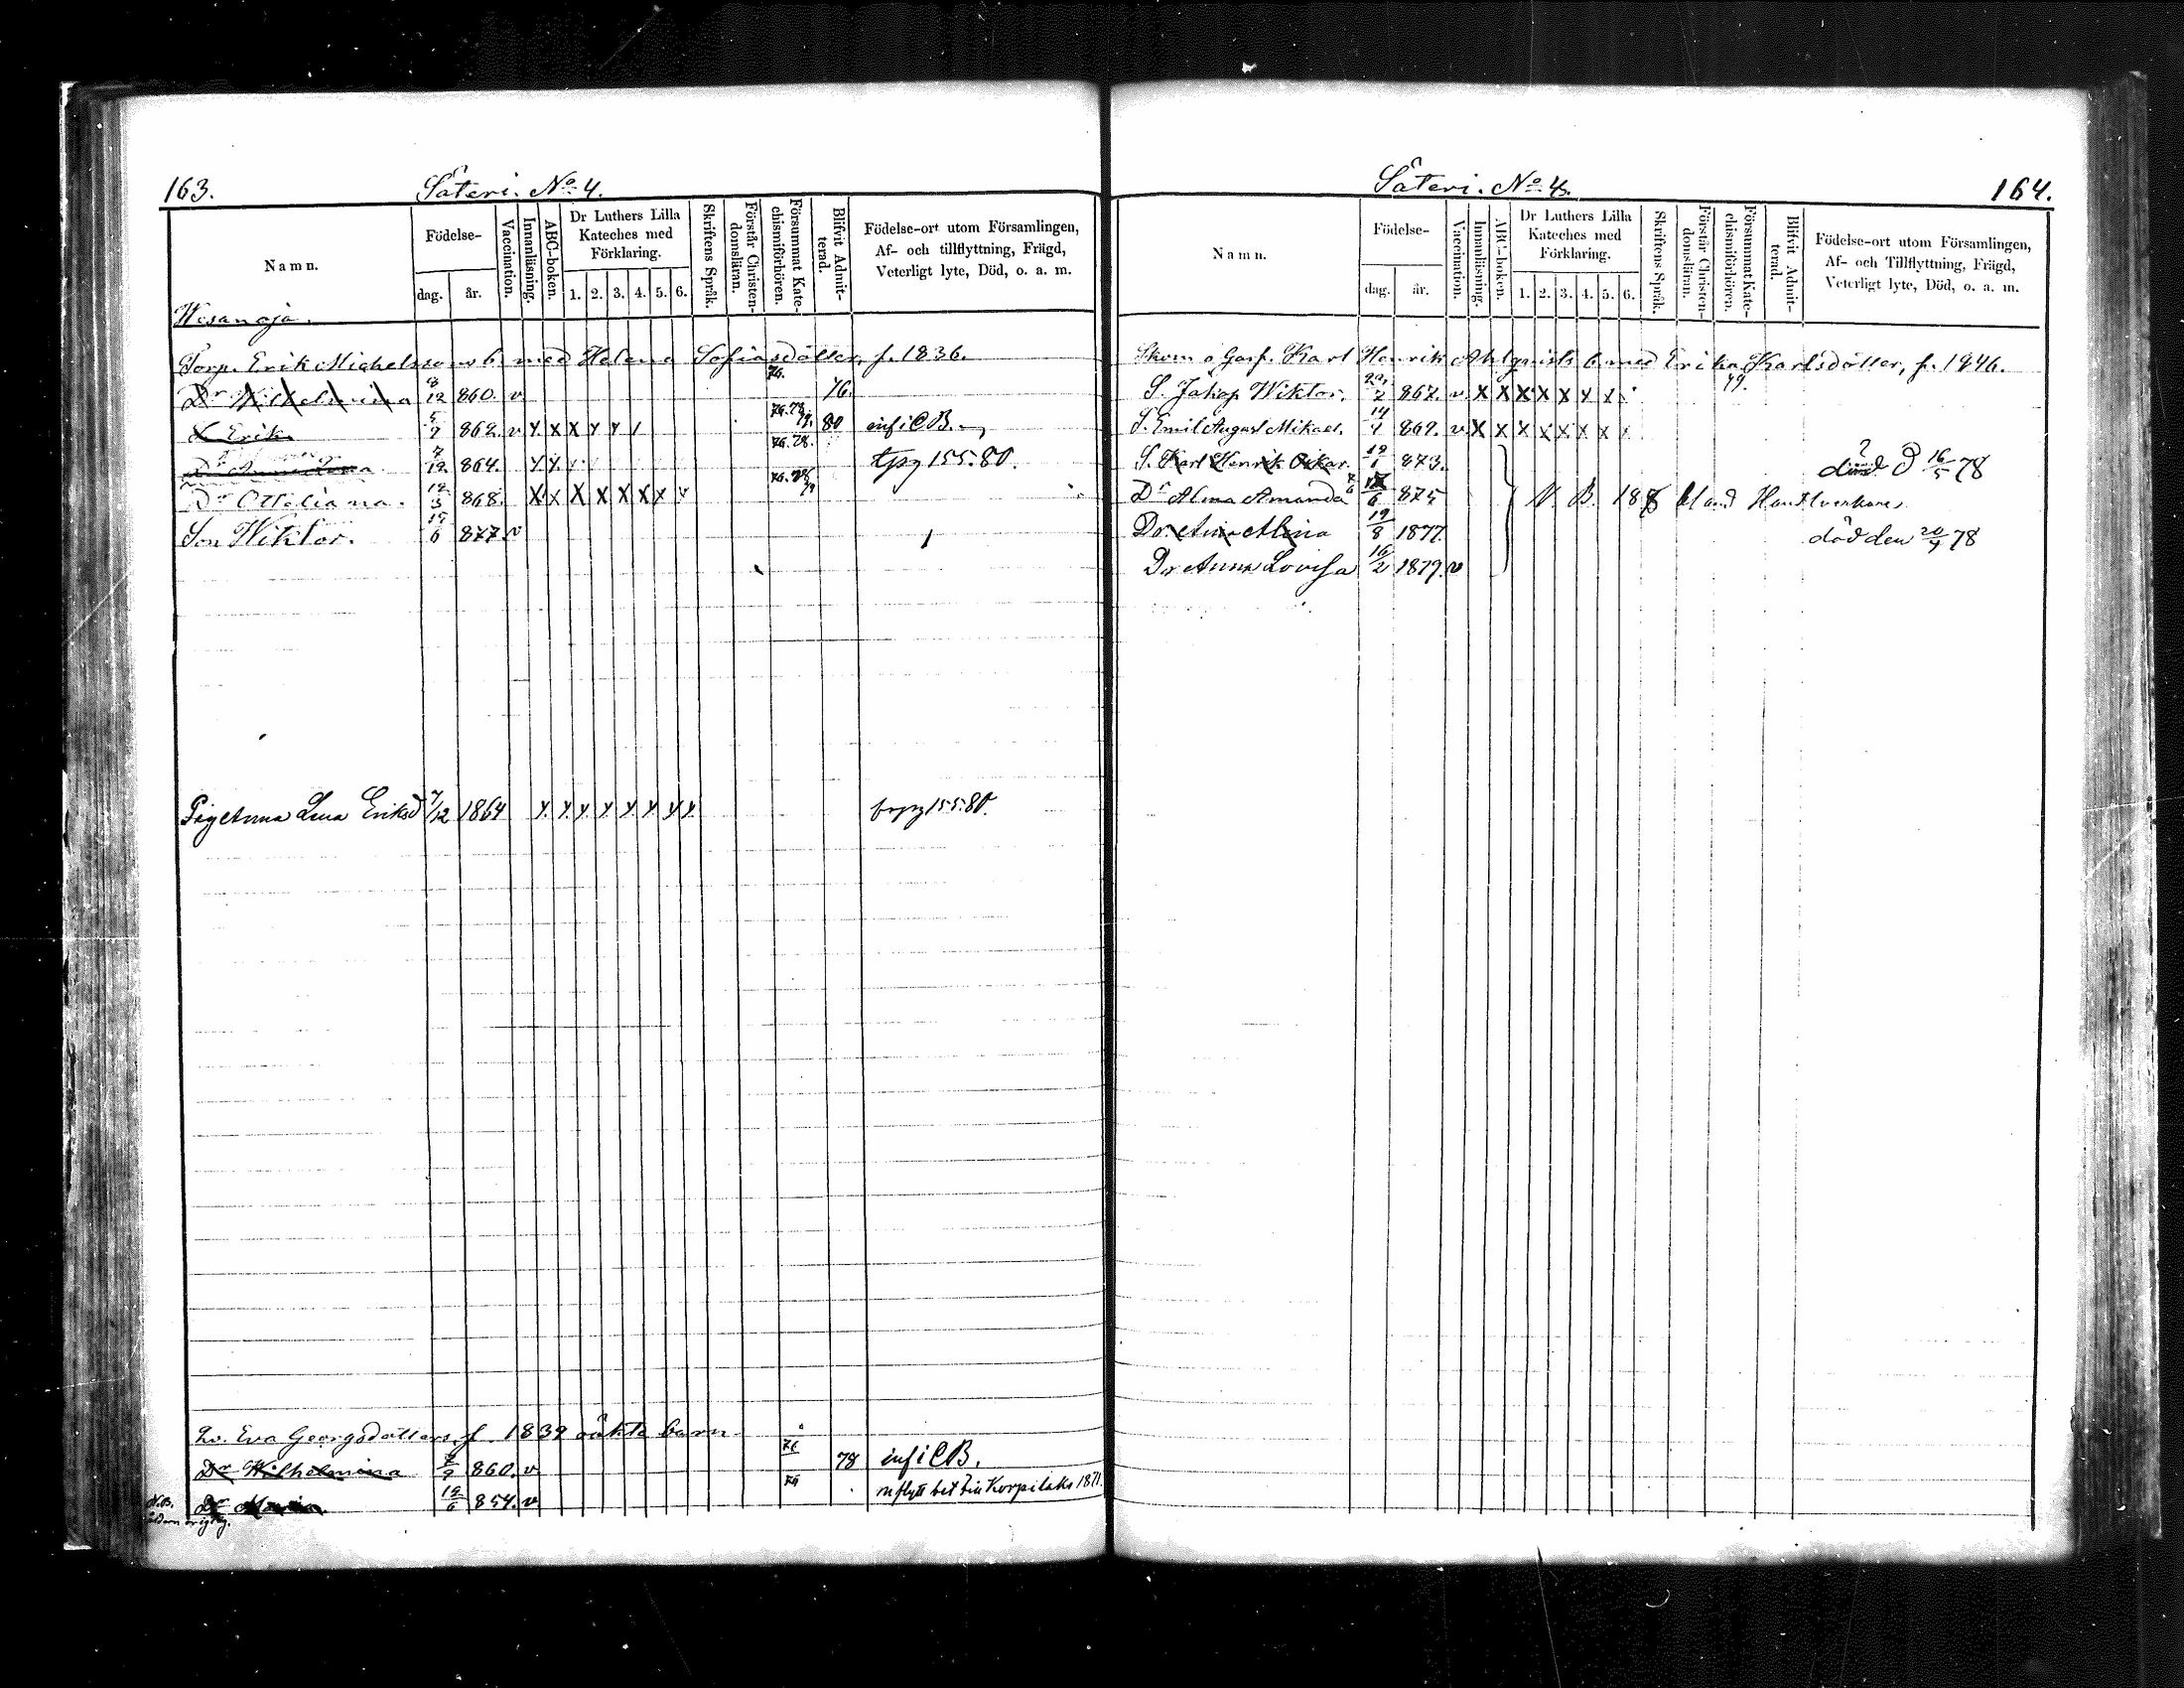 163.
Säteri. No 4.
Namn.
Födelse-
dag.
år.
Vaccination.
Innanläsning.
ABC-boken.
Dr Luthers Lilla
Kateches med
Förklaring.
1. 2. 3. 4. 5. 6.
Skriftens Språk.
Förstår Christen-
domsläran.
Försummat Kate-
chismiförhören.
Blifvit Admit-
terad.
Födelse-ort utom Församlingen,
Af- och tillflyttning, Frägd,
Veterligt lyte, Död, o. a. m.
Wesanoja.
Torp. Erik Michelsson o b. med Helena Sofiasdotter, f. 1836.
Dr Wilhelmina 8/12 860. v 76. 76.
S. Erik 5/7 862. v Y. X X Y Y / 80 inf i C B.
Dr Anna Lena 7/12 864. Y. Y. 76. 78. tpg 155. 80.
Dr Ottiliana. 12/3 868. X X X X X X X v
Son Wiktor. 15/6 877 v
Pig Anna Lena Eriksd 7/12 1864 Y. Y. Y. Y. Y. Y. Y. Y. frpg 155. 80.
Eva Georgsdotters f. 1839 oäkta barn
Dr Wilhelmina 7/2 860. v 76 78 inf i C B.
N.B. Dr Maria 12/6 854. v Korpilaks 1871.
164.
Säteri. No 4.
Namn.
Födelse-
dag.
år.
Vaccination.
Innanläsning.
ABC-boken.
Dr Luthers Lilla
Kateches med
Förklaring.
1. 2. 3. 4. 5. 6.
Skriftens Språk.
Förstår Christen-
domsläran.
Försummat Kate-
chismiförhören.
Blifvit Admit-
terad.
Födelse-ort utom Församlingen,
Af- och Tillflyttning, Frägd,
Veterligt lyte, Död, o. a. m.
Skom. o Garf. Karl Henrik Ahlqvists b med Erika Karlsdotter, f. 1846.
S. Jakop Wiktor. 867. v. X X X X X X X 79.
S. Emil August Mikael. 14/4 869. v X X X X X X X
S. Karl Henrik Oskar. 19/1 873. död d 16/5 78
Dr Alma Amanda 875 N. B. 188 bland Handtverkare
Dr. Aina Alina 19/8 1877. död den 20/4 78
Dr Anna Lovisa 16/2 1879. v